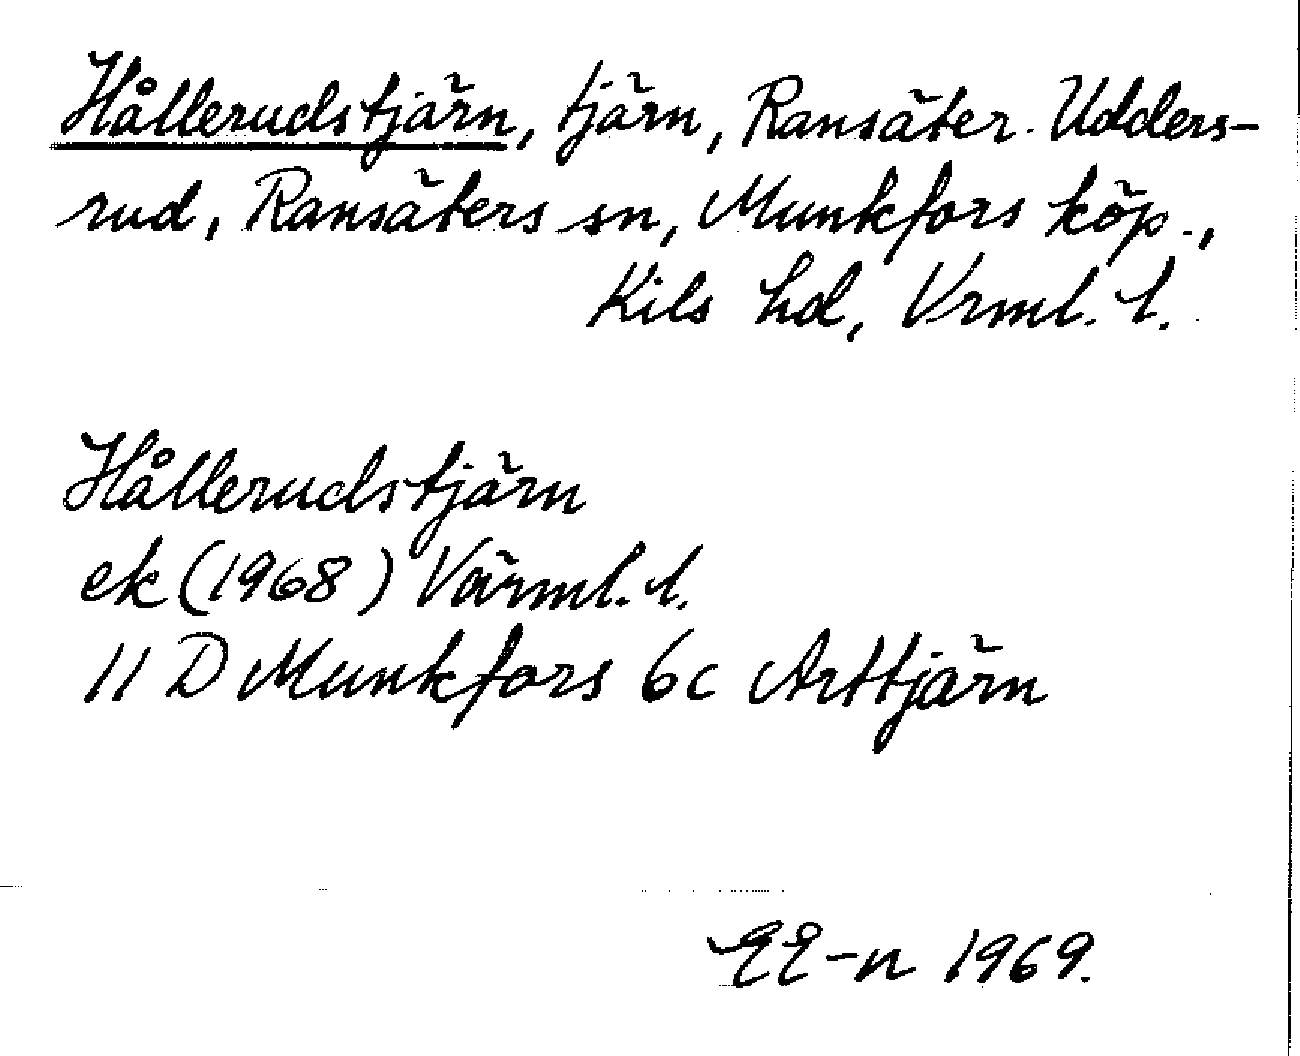 Hållerudstjärn, tjärn, Ransäter. Udders-
rud, Ransäters sn, Munkfors köp.,
Kils hd, Vrml. l.
Hållerudstjärn
ek (1968) Värml. l.
11 D Munkfors 6c Arttjärn
EE-n 1969.